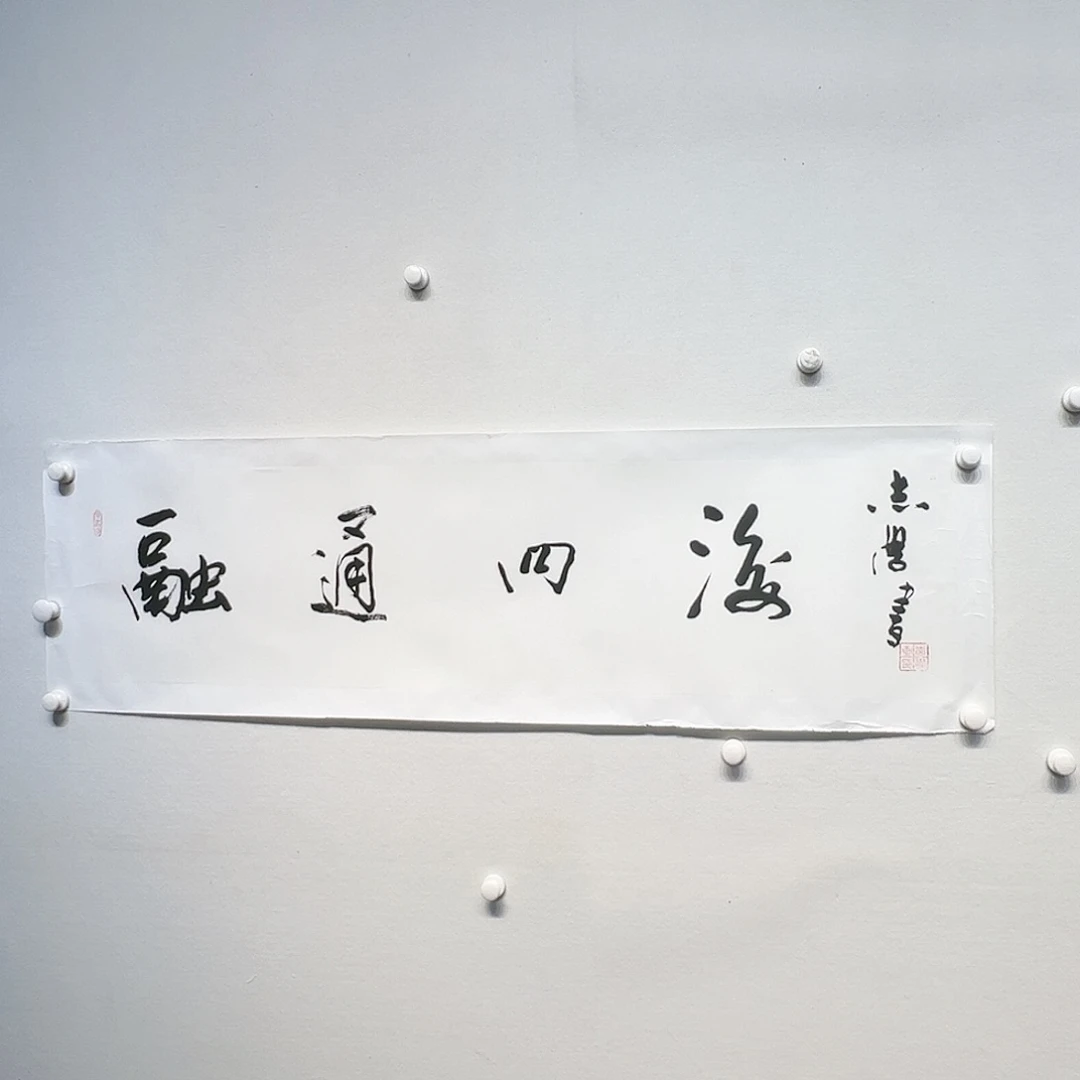 融通四海
志学书